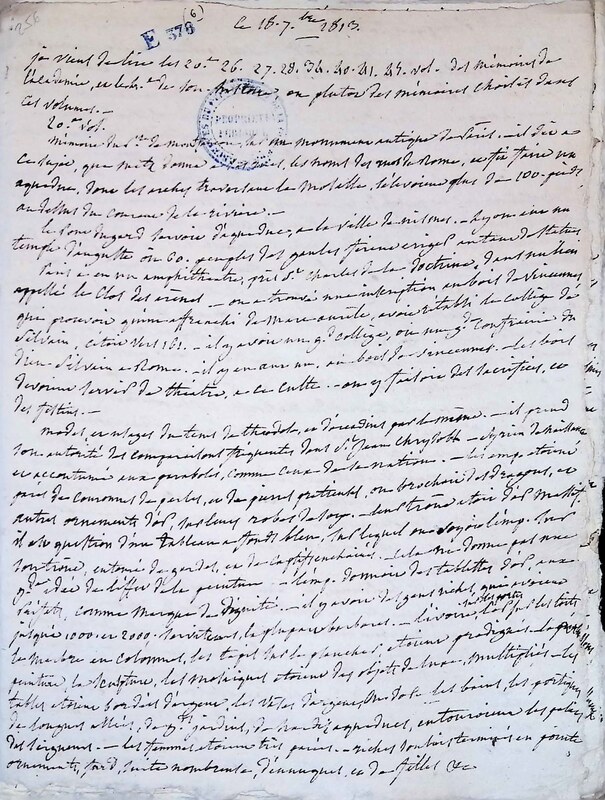 256
E 376 (6)
ce 18. 7.bre 1813.
je viens de lire les 20.e 26. 27. 28. 34. 40. 41. 43. vol. des mémoires de
l'académie, de son histoire, ou plutot des mémoires choisis dans
ces volumes. —
20.e vol.
mémoire du S.r de monument antique de Paris. — il dit a
ce sujet, que metz les noms de Rome, fit faire un
aqueduc, dont les arches traversant la Moselle, s'élevoient plus de 100. pieds
au dessus du courant de la riviere. —
le Pont du gard servoit d'aqueduc, a la ville de nismes. — Lyon eut un
temple d'auguste ou 60. peuples des gaules firent eriger autant de statues
Paris a eu un amphitheatre, près S.t Charles de la doctrine, dans un lieu
appellé le Clos des arenes — on a trouvé une inscription au bois de Vincennes
qui prouvoit qu'un affranchi de Marc aurele, avoit rétabli le college de
Silvain, — il y avoit un g.d college, ou une g.de confrairie du
dieu Silvain a Rome. — il y en eut un, au bois de vincennes. — les bois
devoient servir de theatre, a ce culte. — on y faisoit des sacrifices, et
des festins. —
modes, et usages du tems de theodose, et d'arcadius par le même. — il prend
son autorité des comparaisons frequentes dans S.t Jean Chrysost.
accoutumé aux paraboles, comme ceux de sa nation. — les emp. etoient
parés de couronnes de perles, et de pierres pretieuses, on brochoit des dragons, et
autres ornements d'or, sur leurs robes de soye. — leur trône etoit d'or massif.
il est question d'un tableau a fonds bleu, sur lequel on voyoit l'emp. sur
son trône, entouré de gardes, et de — cela ne donne pas une
g.de idée de l'effet de la peinture — l'emp. donnoit des tablettes d'or, aux
comme marque de dignité. — il y avoit des gens riches, qui avoient
jusques 1000 et 2000. serviteurs, la plupart barbares. — l'ivoire sur les portes
le marbre en colonnes, les tapis sur les planchers, etoient prodigués. —
peinture, la sculpture, les mosaiques etoient des objets de luxe, multipliés — les
tables etoient bordées d'argent, les vases d'argent, ou d'or. les bains, les portiques
de longues allées, de g.ds jardins, de aqueducs, entouroient les palais
des seigneurs — les femmes etoient très parées. — riches souliers terminés en pointe
ornements, fard, suite nombreuse d'eunuques, et de filles &c